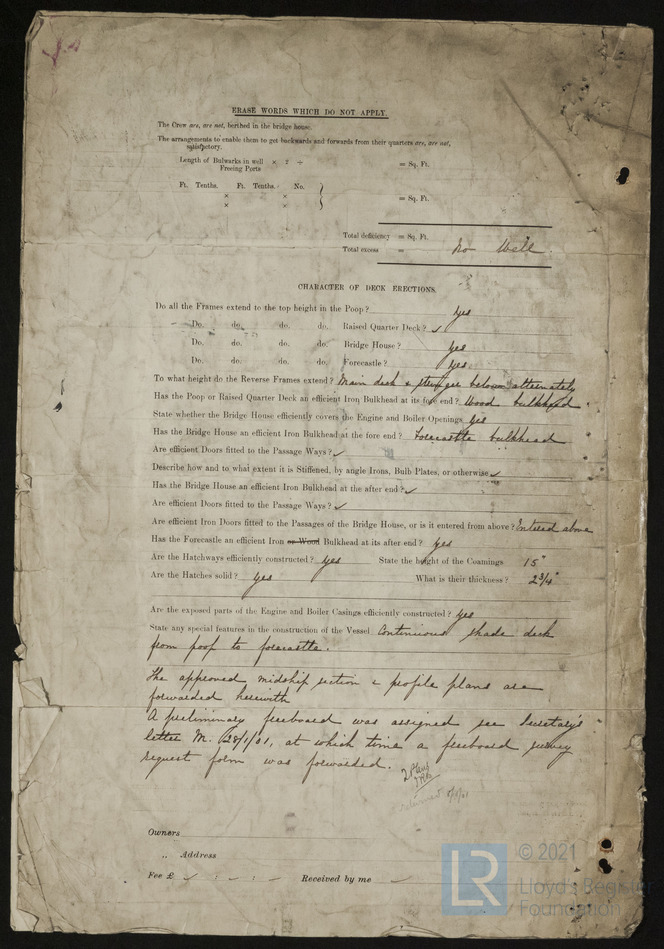 ERASE WORDS WHICH DO NOT APPLY.
The Crew are, are not, berthed in the bridge house.
The arrangements to enable them to get backwards and forwards from their quarters are, are not,
satisfactory.
Length of Bulwarks in well × 2 ÷ = Sq. Ft.
Freeing Ports
Ft. Tenths. Ft. Tenths. No.
× × = Sq. Ft.
× ×
Total deficiency = Sq. Ft.
Total excess = No Well.
CHARACTER OF DECK ERECTIONS.
Do all the Frames extend to the top height in the Poop? Yes
Do. do. do. do. Raised Quarter Deck? ✓
Do. do. do. do. Bridge House? Yes
Do. do. do. do. Forecastle? Yes
To what height do the Reverse Frames extend? Main deck & stringer below alternately
Has the Poop or Raised Quarter Deck an efficient Iron Bulkhead at its fore end? Wood bulkhead.
State whether the Bridge House efficiently covers the Engine and Boiler Openings. Yes
Has the Bridge House an efficient Iron Bulkhead at the fore end? Forecastle bulkhead
Are efficient Doors fitted to the Passage Ways? ✓
Describe how and to what extent it is Stiffened, by angle Irons, Bulb Plates, or otherwise ✓
Has the Bridge House an efficient Iron Bulkhead at the after end? ✓
Are efficient Doors fitted to the Passage Ways? ✓
Are efficient Iron Doors fitted to the Passages of the Bridge House, or is it entered from above? Entered above
Has the Forecastle an efficient Iron or Wood Bulkhead at its after end? Yes
Are the Hatchways efficiently constructed? Yes State the height of the Coamings 15"
Are the Hatches solid? Yes What is their thickness? 2¾"
Are the exposed parts of the Engine and Boiler Casings efficiently constructed? Yes
State any special features in the construction of the Vessel Continuous shade deck
from poop to forecastle.
The approved midship section & profile plans are
forwarded herewith
A preliminary freeboard was assigned see Secretary's
letter M. 28/1/01, at which time a freeboard survey
request form was forwarded.
2 Plans
Owners
„ Address
Fee £ ✓ : - : - Received by me
LR © 2021
Lloyd's Register
Foundation